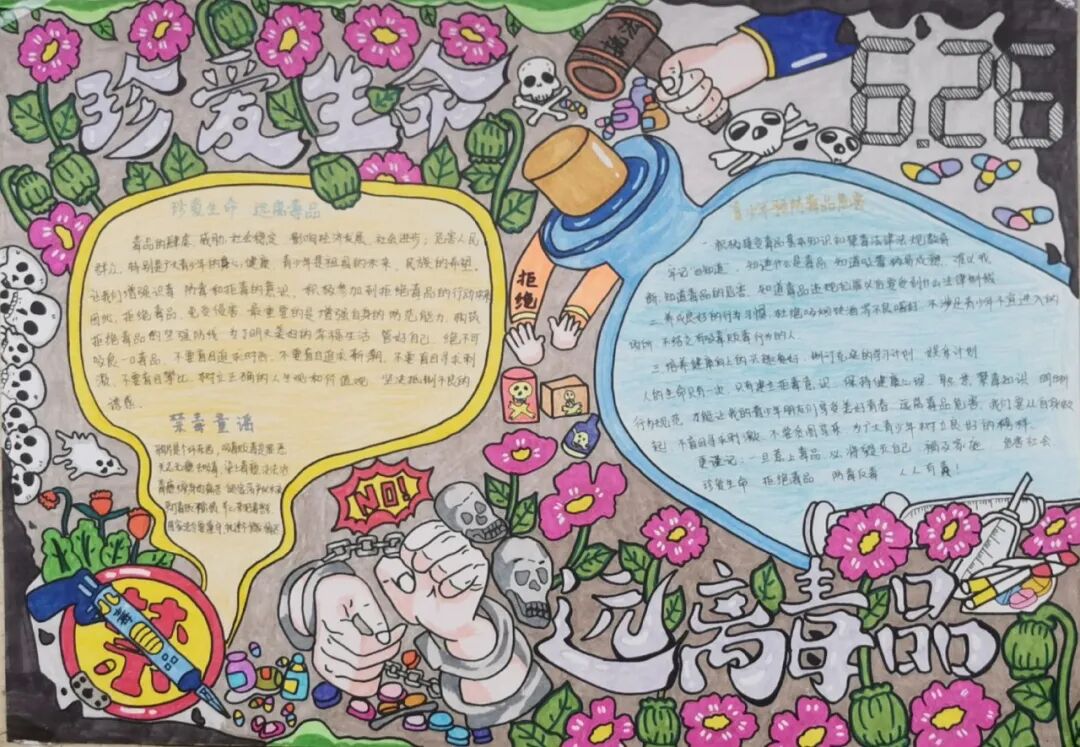 珍爱生命
6.26
珍爱生命 远离毒品
毒品的肆虐 威胁社会稳定 影响经济发展 社会进步；危害人民
群众，特别是广大青少年的身心健康。青少年是祖国的未来、民族的希望。
让我们增强识毒 防毒和拒毒的意识。积极参加到拒绝毒品的行动中来
因此，拒绝毒品，免受侵害 最重要的是增强自身的防范能力 构筑
拒绝毒品的坚强防线 为了明天美好的幸福生活 管好自己 绝不可
吸食一口毒品，不要盲目追求时尚、不要盲目追求新潮、不要盲目寻求刺
激、不要盲目攀比 树立正确的人生观和价值观 坚决抵制不良的
诱惑。
禁毒童谣
拒绝
青少年预防毒品危害
一 积极接受毒品基本知识和禁毒法律法规教育
牢记"四知道"，知道什么是毒品 知道吸毒极易成瘾，难以戒
断，知道毒品的危害，知道毒品违规犯罪以后要受到什么法律制裁
二 养成良好的行为习惯，杜绝吸烟饮酒等不良嗜好，不涉足青少年不宜进入的
场所 不结交有吸毒贩毒行为的人。
三 培养健康向上的兴趣爱好，制订充足的学习计划 娱乐计划
人的生命只有一次 只有建立拒毒意识，保持健康心理，
行为规范 才能让我的青少年朋友们享受美好青春 远离毒品危害，我们要从自身做
起！不盲目寻求刺激 不 为广大青少年树立良好的榜样。
更谨记：一旦惹上毒品 必将毁灭自己 祸及家庭 危害社会
珍爱生命 拒绝毒品 防毒反毒 人人有责！
NO!
禁
毒品
远离毒品